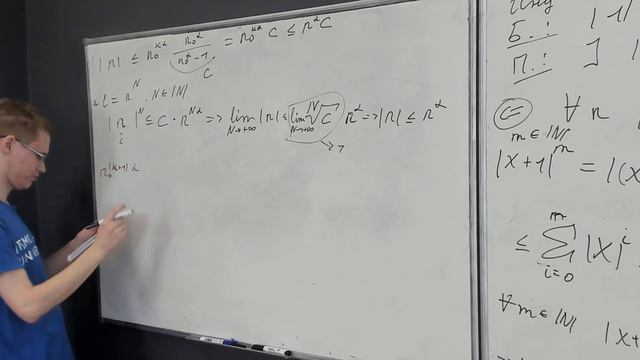 |n| ≤ n₀^{kα} n₀^α / (n₀^α − 1) = n₀^{kα} C ≤ n^α C
C
l = n^N, N ∈ |N|
|n|^N ≤ C · n^{Nα} => lim_{N→+∞} |n| ≤ lim_{N→+∞} ᴺ√C n^α => |n| ≤ n^α
→ 1
n₀^{(k+1)α}
Б.:
П.:
<= ∀ n
m ∈ |N|
|x+1|^m = |(x
≤ ∑_{i=0}^{m} |x|^i
∀ m ∈ |N| |x+